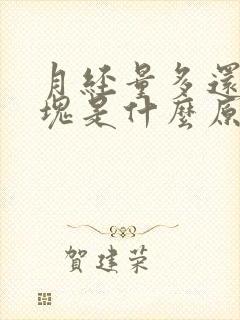 月經量多還
塊是什麼原
賀建荣